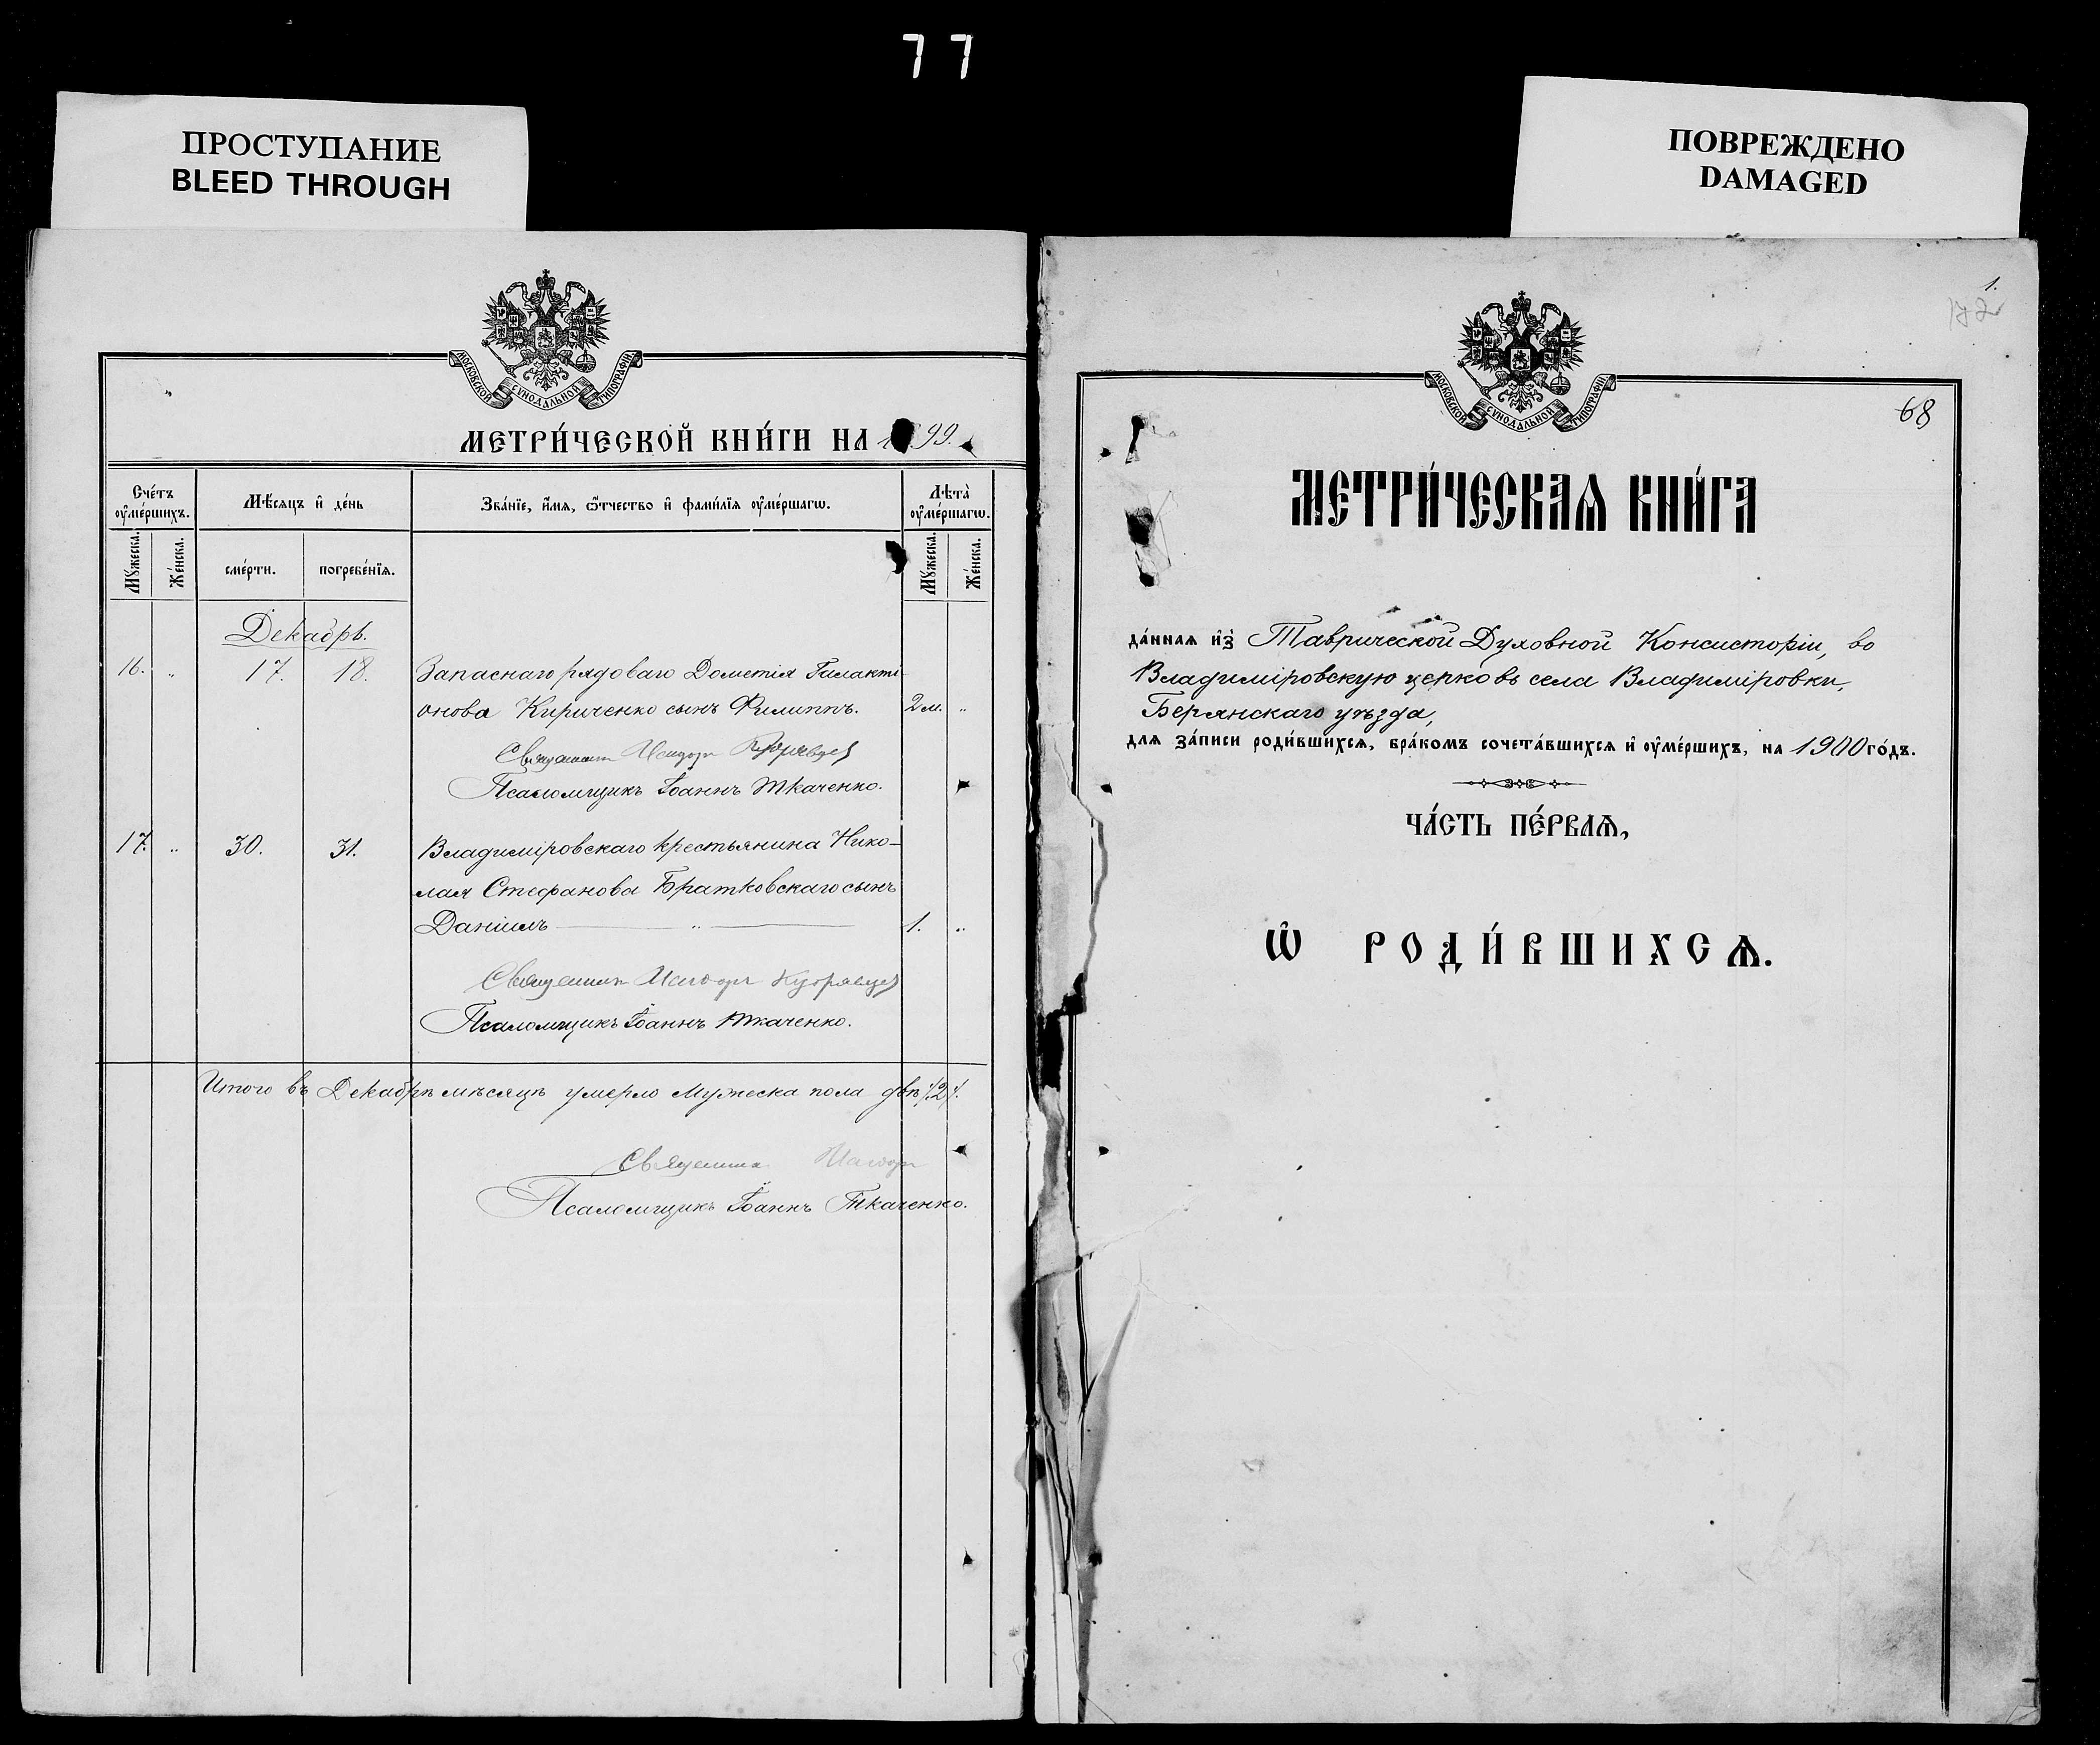 77
ПРОСТУПАНИЕ
BLEED THROUGH
ПОВРЕЖДЕНО
DAMAGED
МОСКОВСКОЙ СѴНОДАЛЬНОЙ ТИПОГРАФІИ
МЕТРИ́ЧЕСКОЙ КНИ́ГИ НА 99.
Сче́тъ оу҆ме́ршихъ.
Мѣ́сяцъ и҆ де́нь
Зва́нїе, и҆́мѧ, ѻ҆́тчество и҆ фами́лїѧ оу҆ме́ршагѡ.
Лѣта̀ оу҆ме́ршагѡ.
Му́жеска.
Же́нска.
сме́рти.
погребе́нїѧ.
Му́жеска.
Же́нска.
Декабрь.
16. „ 17. 18. Запаснаго рядоваго Дометія Галакті-
онова Кириченко сынъ Филиппъ. 2 м. „
Священникъ Исидоръ Кудрявцев
Псаломщикъ Іоаннъ Ткаченко.
17. „ 30. 31. Владиміровскаго крестьянина Нико-
лая Стефанова Братковскаго сынъ
Даніилъ — „ — 1. „
Священникъ Исидоръ Кудрявцев
Псаломщикъ Іоаннъ Ткаченко.
Итого въ Декабрѣ мѣсяцѣ умерло мужеска пола двѣ /2/.
Священник Исидор
Псаломщикъ Іоаннъ Ткаченко.
1.
68
МОСКОВСКОЙ СѴНОДАЛЬНОЙ ТИПОГРАФІИ
МЕТРИ́ЧЕСКАѦ КНИ́ГА
да́ннаѧ и҆з̾ Таврической Духовной Консисторіи, во
Владиміровскую церковь села Владиміровки,
Берянскаго уѣзда,
для за́писи роди́вшихсѧ, бра́комъ сочета́вшихсѧ и҆ оу҆ме́ршихъ, на 1900 го́дъ.
ЧА́СТЬ ПЕ́РВАѦ,
Ѡ҆ РОДИ́ВШИХСѦ.